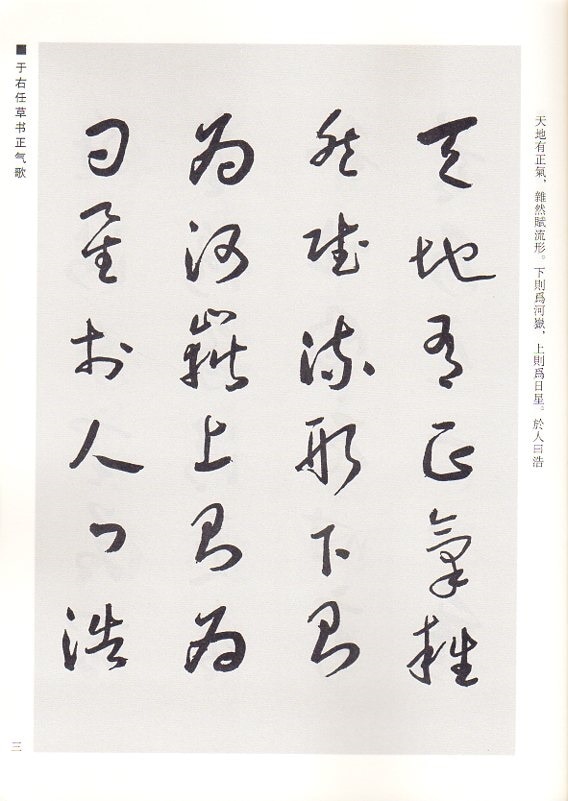 天地有正氣，雜然賦流形。下則爲河嶽，上則爲日星。於人曰浩
天地有正氣雜
然賦流形下則
為河嶽上則為
日星於人曰浩
■于右任草书正气歌
三